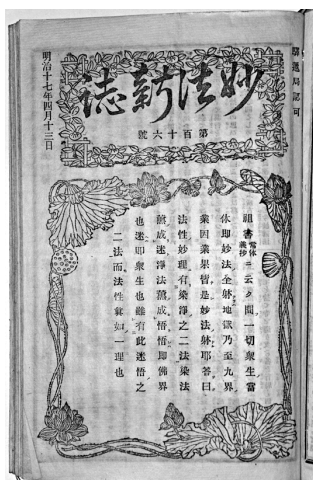 驛遞局認可
妙法新誌
第百十六號
明治十七年四月十三日
祖書當体義抄ニ云ク問一切衆生當
体即妙法全躰地獄乃至九界
業因業果皆是妙法躰耶答曰
法性妙理有染淨之二法染法
薰成迷淨法薰成悟悟即佛界
也迷即衆生也雖有此迷悟之
二法而法性眞如一理也